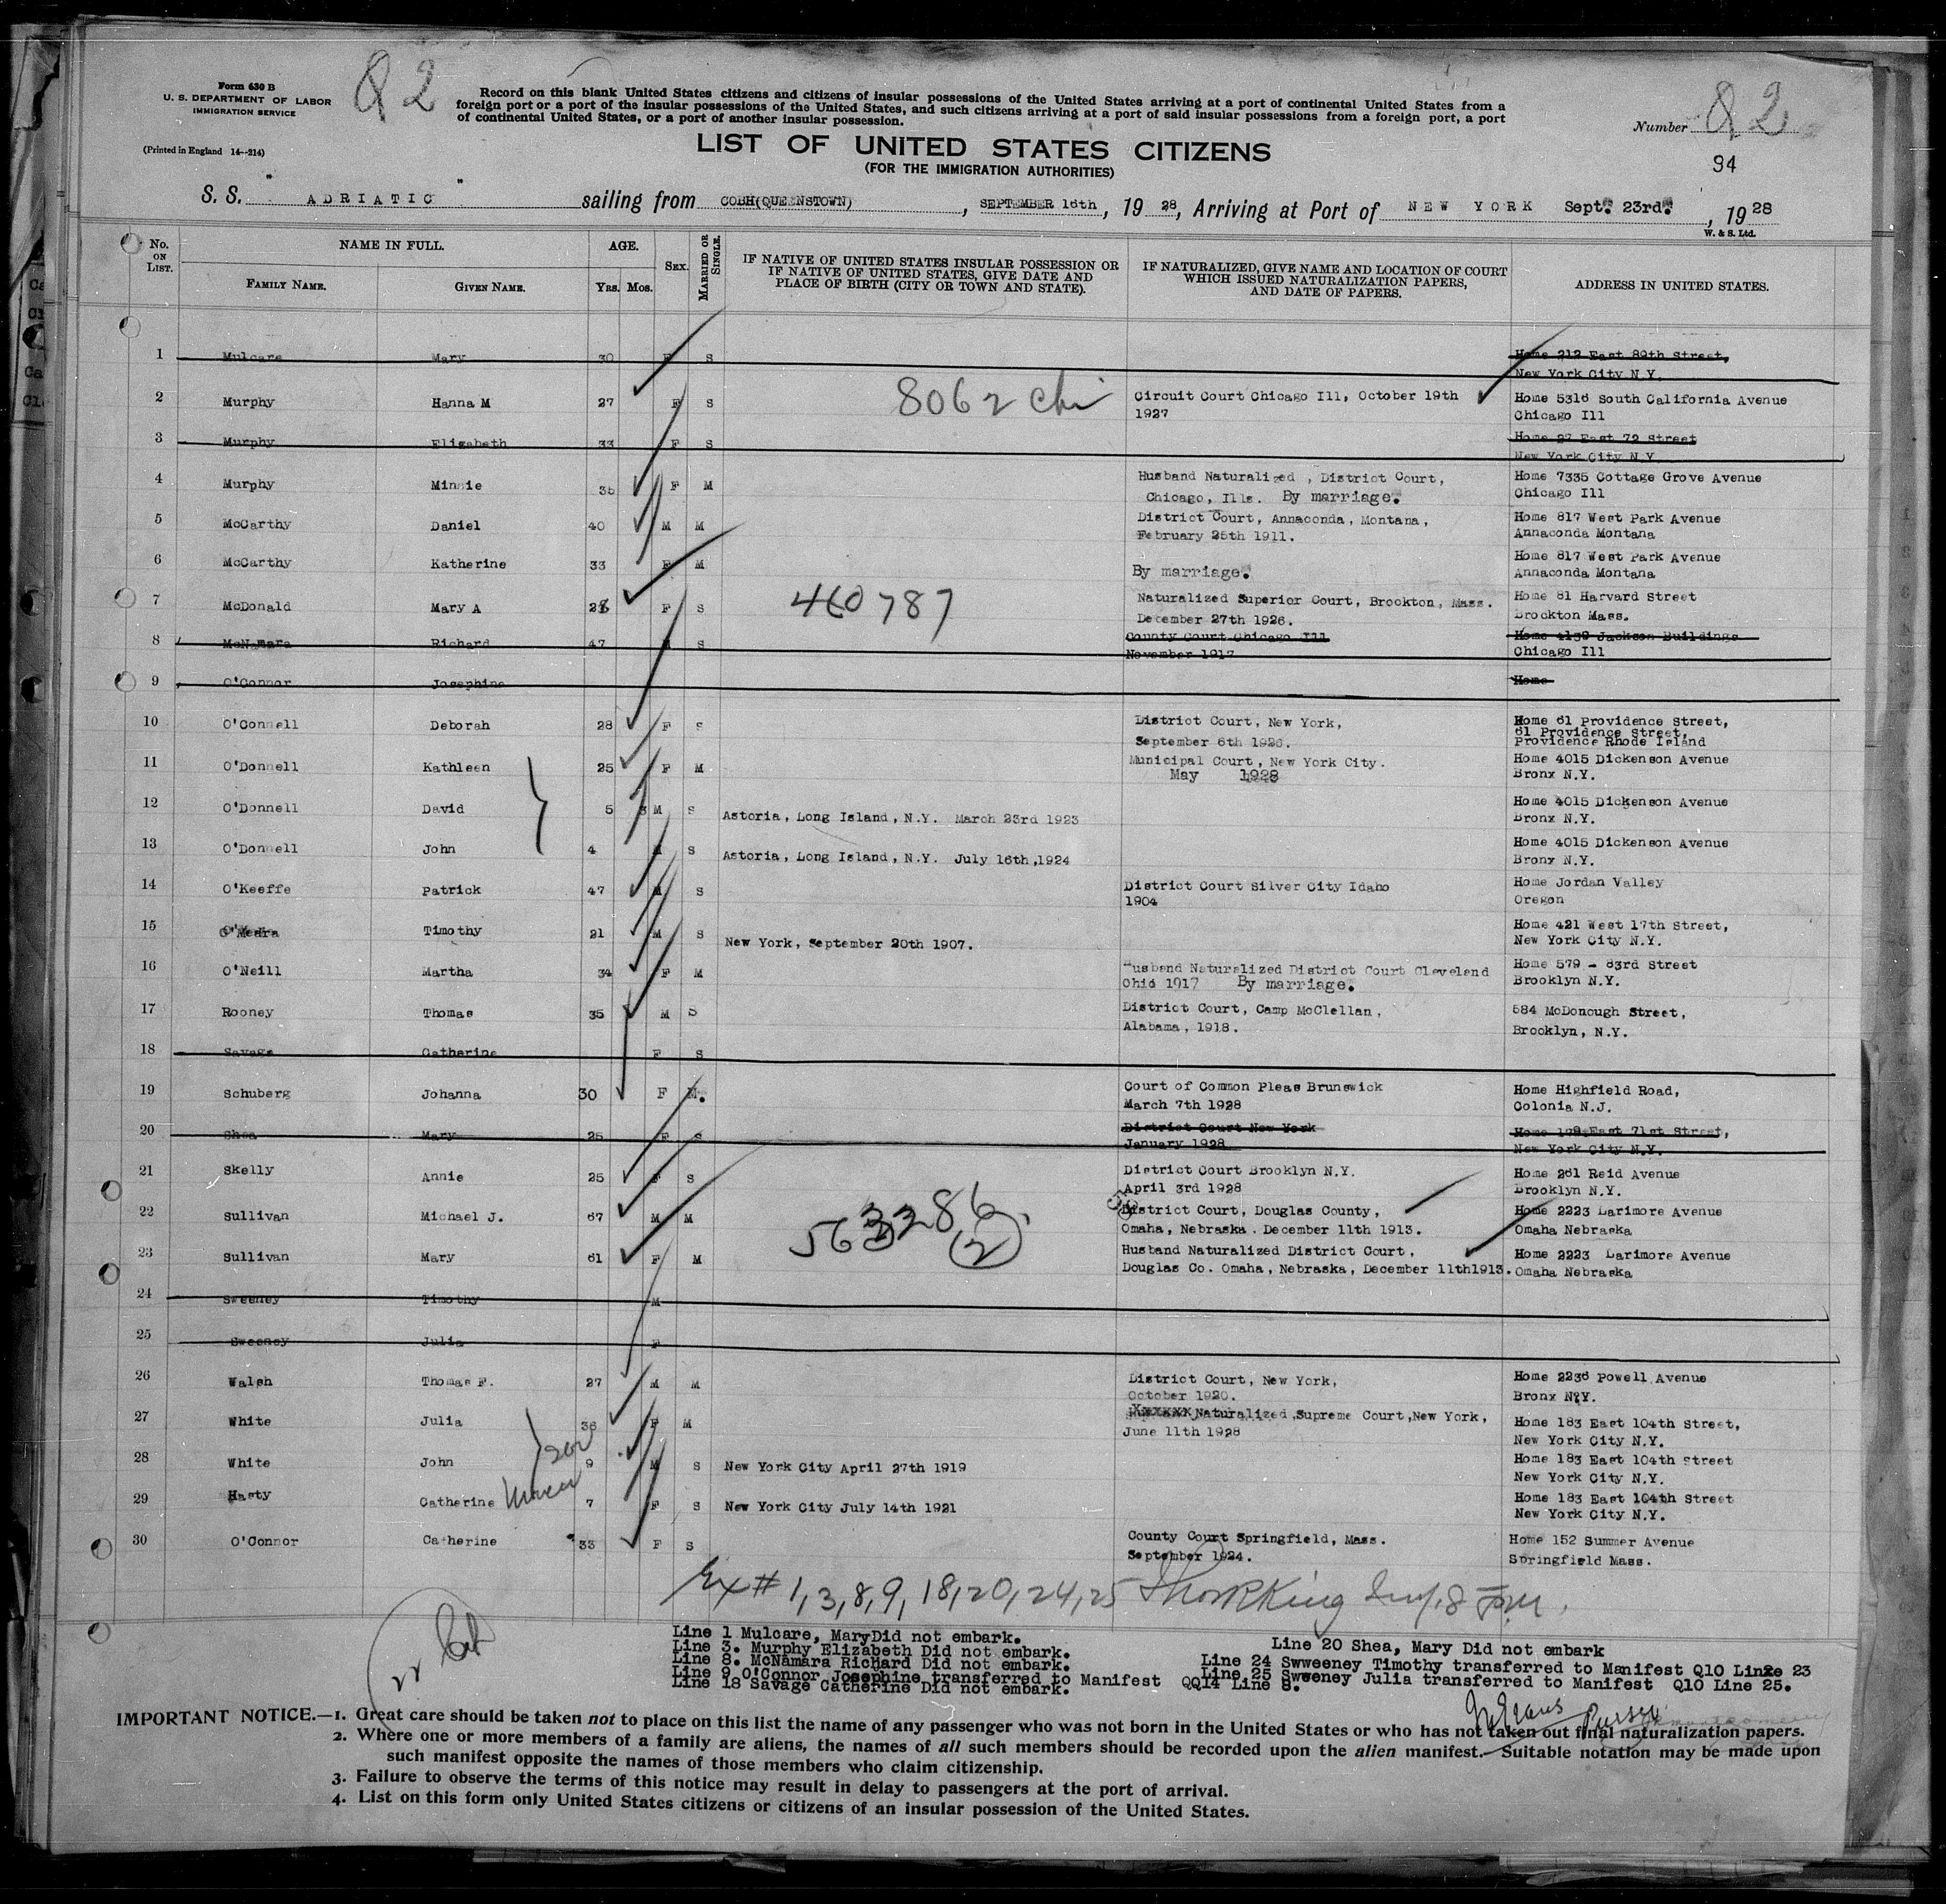 Form 630 B
U. S. DEPARTMENT OF LABOR
IMMIGRATION SERVICE
(Printed in England 14--214)
Q2
Record on this blank United States citizens and citizens of insular possessions of the United States arriving at a port of continental United States from a
foreign port or a port of the insular possessions of the United States, and such citizens arriving at a port of said insular possessions from a foreign port, a port
of continental United States, or a port of another insular possession.
LIST OF UNITED STATES CITIZENS
(FOR THE IMMIGRATION AUTHORITIES)
Number Q2
94
S. S. " ADRIATIC " sailing from COBH(QUEENSTOWN), SEPTEMBER 16th, 19 28, Arriving at Port of NEW YORK Sept. 23rd., 1928
W. & S. Ltd.
No. ON LIST. NAME IN FULL. AGE. SEX. MARRIED OR SINGLE. IF NATIVE OF UNITED STATES INSULAR POSSESSION OR IF NATIVE OF UNITED STATES, GIVE DATE AND PLACE OF BIRTH (CITY OR TOWN AND STATE). IF NATURALIZED, GIVE NAME AND LOCATION OF COURT WHICH ISSUED NATURALIZATION PAPERS, AND DATE OF PAPERS. ADDRESS IN UNITED STATES.
FAMILY NAME. GIVEN NAME. Yrs. Mos.
1 Mulcare Mary 30 F S Home 212 East 89th Street,
New York City N.Y.
2 Murphy Hanna M 27 F S 8062 Chi Circuit Court Chicago Ill, October 19th Home 5316 South California Avenue
1927 Chicago Ill
3 Murphy Elizabeth 33 F S Home 27 East 72 Street
New York City N.Y
4 Murphy Minnie 35 F M Husband Naturalized , District Court, Home 7335 Cottage Grove Avenue
Chicago, Ills. By marriage. Chicago Ill
5 McCarthy Daniel 40 M M District Court, Annaconda, Montana, Home 817 West Park Avenue
February 25th 1911. Annaconda Montana
6 McCarthy Katherine 33 F M Home 817 West Park Avenue
By marriage. Annaconda Montana
7 McDonald Mary A 28 F S 460787 Naturalized Superior Court, Brockton, Mass. Home 81 Harvard Street
December 27th 1926. Brockton Mass.
8 McNamara Richard 47 M S County Court Chicago Ill Home 4139 Jackson Buildings
November 1917 Chicago Ill
9 O'Connor Josephine Home
10 O'Connell Deborah 28 F S District Court, New York, Home 61 Providence Street,
61 Providence Street,
September 6th 1926. Providence Rhode Island
11 O'Donnell Kathleen 25 F M Municipal Court, New York City. Home 4015 Dickenson Avenue
May 1928 Bronx N.Y.
12 O'Donnell David 5 M S Astoria, Long Island, N.Y. March 23rd 1923 Home 4015 Dickenson Avenue
Bronx N.Y.
13 O'Donnell John 4 M S Astoria, Long Island, N.Y. July 16th,1924 Home 4015 Dickenson Avenue
Bronx N.Y.
14 O'Keeffe Patrick 47 M S District Court Silver City Idaho Home Jordan Valley
1904 Oregon
15 O'Meara Timothy 21 M S New York, September 20th 1907. Home 421 West 17th Street,
New York City N.Y.
16 O'Neill Martha 34 F M Husband Naturalized District Court Cleveland Home 579 - 83rd Street
Ohio 1917 By marriage. Brooklyn N.Y.
17 Rooney Thomas 35 M S District Court, Camp McClellan, 584 McDonough Street,
Alabama, 1918. Brooklyn, N.Y.
18 Savage Catherine F S
19 Schuberg Johanna 30 F M. Court of Common Pleas Brunswick Home Highfield Road,
March 7th 1928 Colonia N.J.
20 Shea Mary 25 F S District Court New York Home East 71st Street,
January 1928 New York City N.Y.
21 Skelly Annie 25 F S District Court Brooklyn N.Y. Home 261 Reid Avenue
April 3rd 1928 Brooklyn N.Y.
22 Sullivan Michael J. 67 M M 563286 (2) District Court, Douglas County, Home 2223 Larimore Avenue
Omaha, Nebraska. December 11th 1913. Omaha Nebraska
23 Sullivan Mary 61 F M Husband Naturalized District Court, Home 2223 Larimore Avenue
Douglas Co. Omaha, Nebraska, December 11th1913. Omaha Nebraska
24 Sweeney Timothy M
25 Sweeney Julia F
26 Walsh Thomas F. 27 M M District Court, New York, Home 2236 Powell Avenue
October 1920. Bronx N.Y.
27 White Julia 36 F M Naturalized,Supreme Court,New York, Home 183 East 104th Street,
June 11th 1928 New York City N.Y.
28 White John 9 M S New York City April 27th 1919 Home 183 East 104th Street
New York City N.Y.
29 Hasty Catherine 7 F S New York City July 14th 1921 Home 183 East 104th Street
New York City N.Y.
30 O'Connor Catherine 33 F S County Court Springfield, Mass. Home 152 Summer Avenue
September 1924. Springfield Mass.
Ex # 1,3,8,9,18,20,24,25
Line 1 Mulcare, MaryDid not embark.
Line 3. Murphy Elizabeth Did not embark.
Line 8. McNamara Richard Did not embark.
Line 9 O'Connor Josephine transferred to Manifest QQ14 Line 8.
Line 18 Savage Catherine Did not embark.
Line 20 Shea, Mary Did not embark
Line 24 Swweeney Timothy transferred to Manifest Q10 Line 23
Line 25 Sweeney Julia transferred to Manifest Q10 Line 25.
Purser
IMPORTANT NOTICE.—1. Great care should be taken not to place on this list the name of any passenger who was not born in the United States or who has not taken out final naturalization papers.
2. Where one or more members of a family are aliens, the names of all such members should be recorded upon the alien manifest. Suitable notation may be made upon
such manifest opposite the names of those members who claim citizenship.
3. Failure to observe the terms of this notice may result in delay to passengers at the port of arrival.
4. List on this form only United States citizens or citizens of an insular possession of the United States.